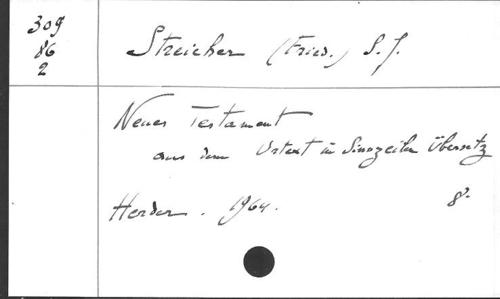 309
86
2
Streicher (Fried.) S.J.
Neues Testament
aus dem Urtext in Sinnzeilen übersetz
Herder. 1964.
8°.